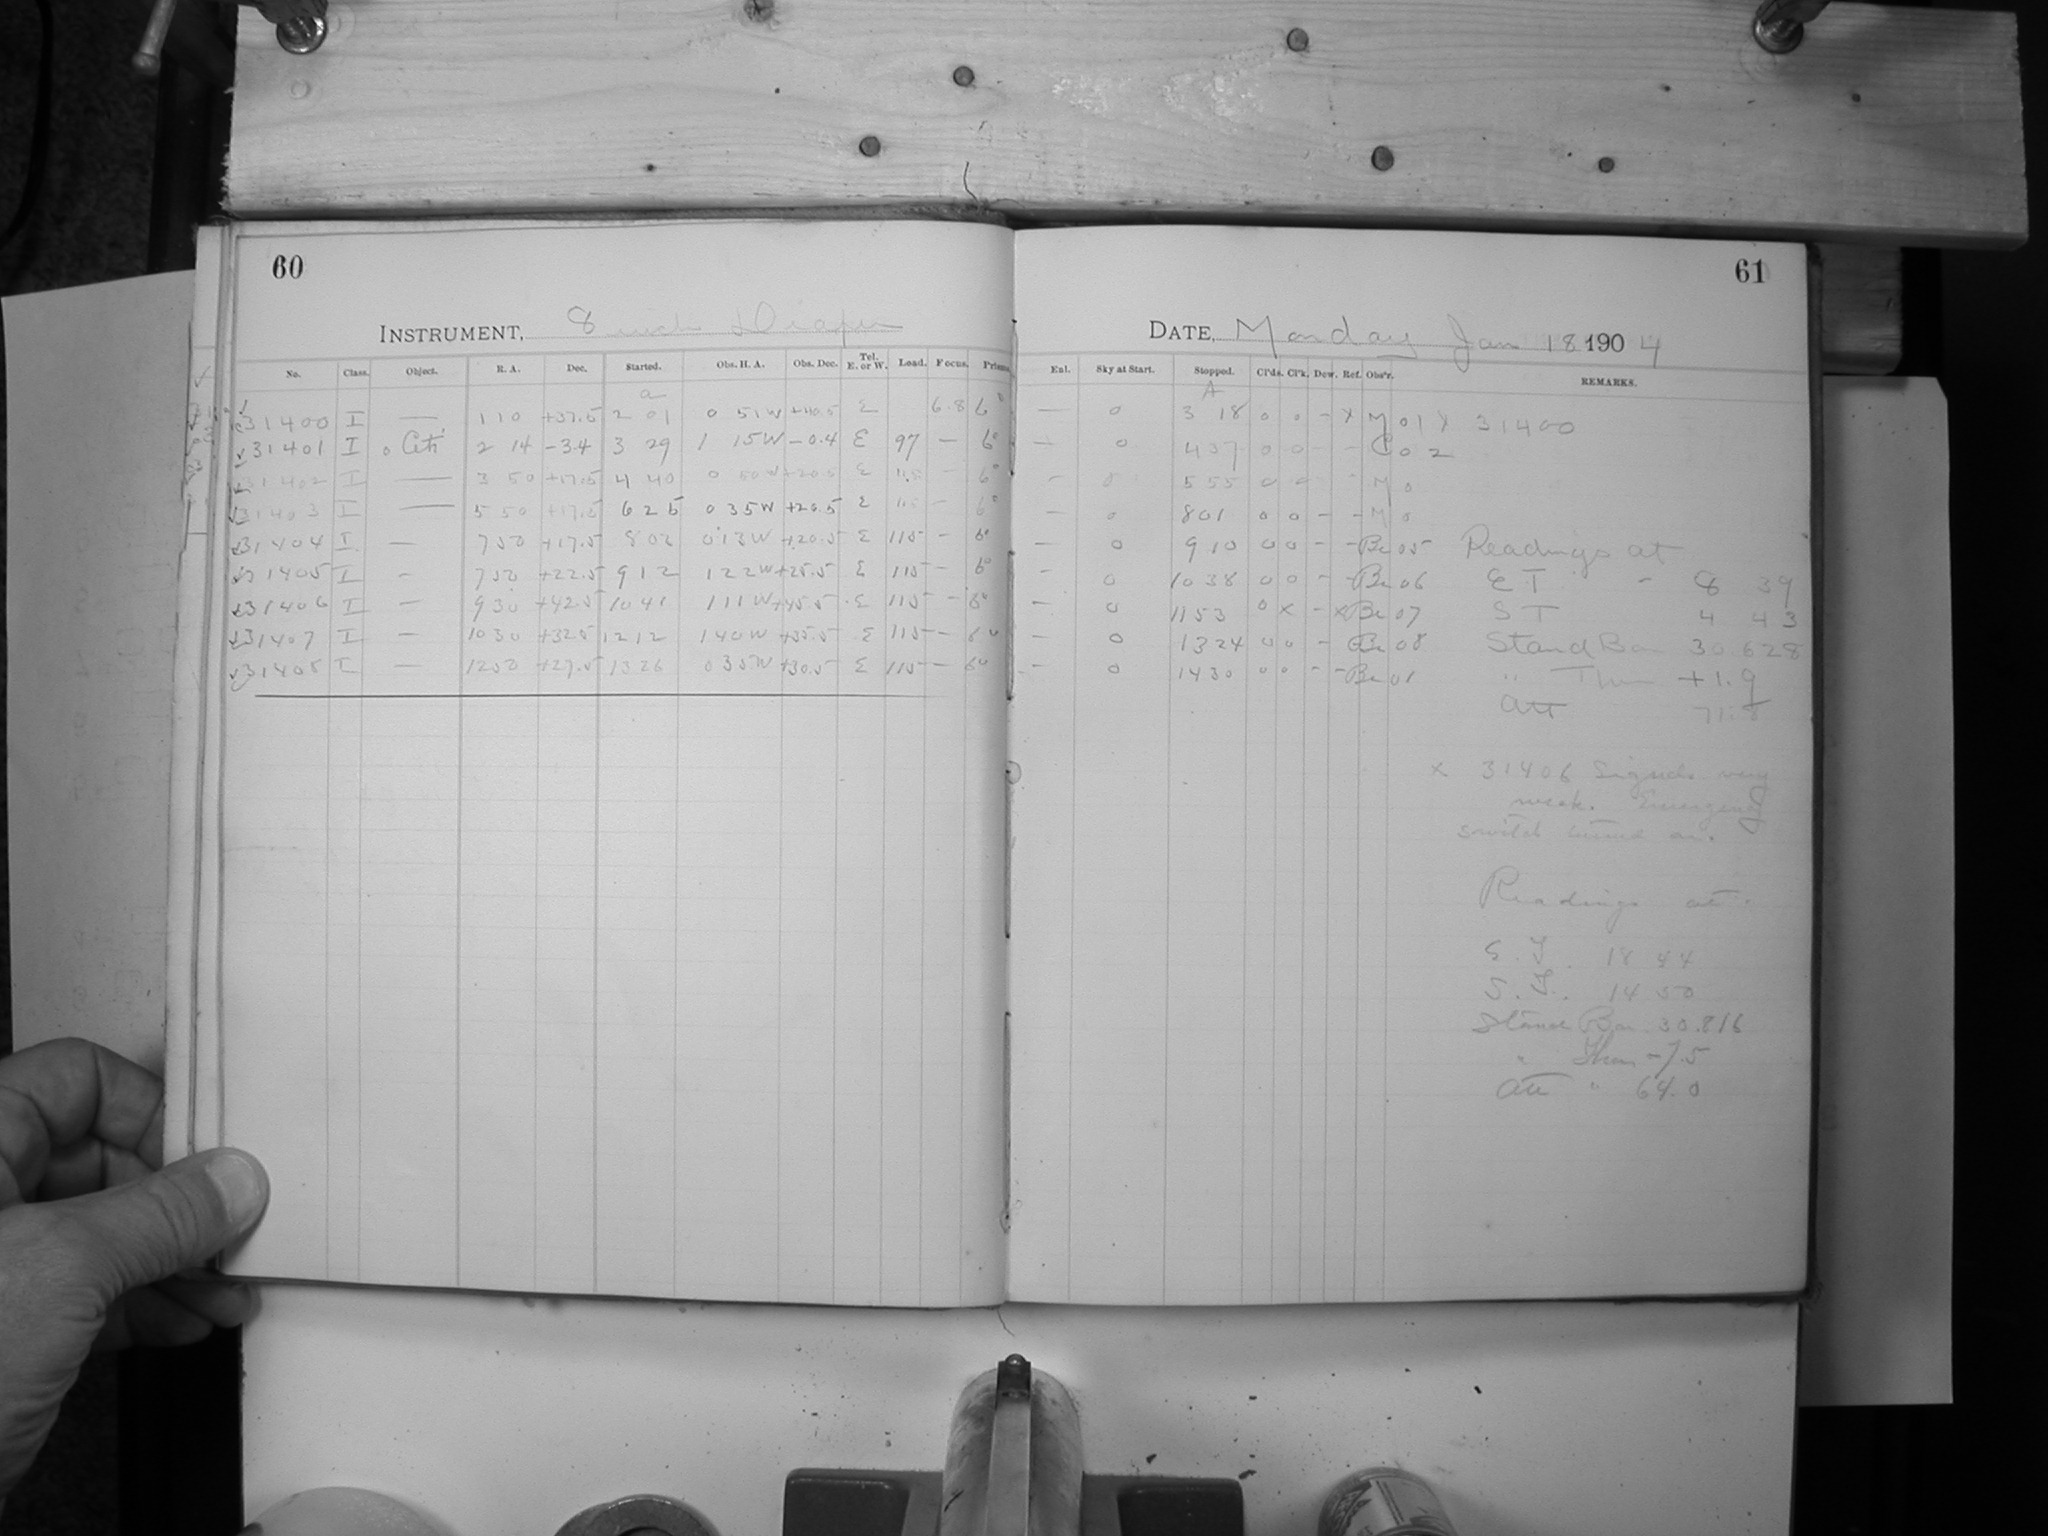 60
INSTRUMENT, 8 inch Draper
No. Class. Object. R. A. Dec. Started. Obs. H. A. Obs. Dec. Tel. E. or W. Load. Focus. Prisms
a
31400 I — 1 10 +37.5 2 01 0 51W +40.5 E 6.8 6°
31401 I o Ceti 2 14 -3.4 3 29 1 15W -0.4 E 97 — 6°
31402 I — 3 50 +17.5 4 40 0 50W +20.5 E — 6°
31403 I — 5 50 +17.5 6 25 0 35W +20.5 E — 6°
31404 I — 7 50 +17.5 8 02 0 13W +20.5 E 115 — 6°
31405 I — 7 50 +22.5 9 12 1 22W +25.5 E 115 — 6°
31406 I — 9 30 +42.5 10 41 1 11W +45.5 E 115 — 6°
31407 I — 10 30 +32.5 12 12 1 40W +35.5 E 115 — 6°
31408 I — 12 50 +27.5 13 26 0 35W +30.5 E 115 — 6°
61
DATE, Monday Jan 18 1904
Enl. Sky at Start. Stopped. Cl'ds. Cl'k. Dew. Ref. Obs'r. REMARKS.
A
— 0 3 18 0 0 - x M 01 x 31400
— 0 4 37 0 0 - - Co 2
— 0 5 55 0 0 - M 0
— 0 8 01 0 0 - - M 0
— 0 9 10 0 0 - - Be 05 Readings at
— 0 10 38 0 0 - - Be 06 E T - 8 39
— 0 11 53 0 x - x Be 07 S T 4 43
— 0 13 24 0 0 - - Be 08 Stand Bar 30.628
— 0 14 30 0 0 - - Be 01 " Ther +1.9
Att 71.8
x 31406 Signals very
weak. Emergency
switch turned on.
Readings at
E. T. 18 44
S. T. 14 50
Stand Bar 30.816
" Ther -7.5
Att " 64.0